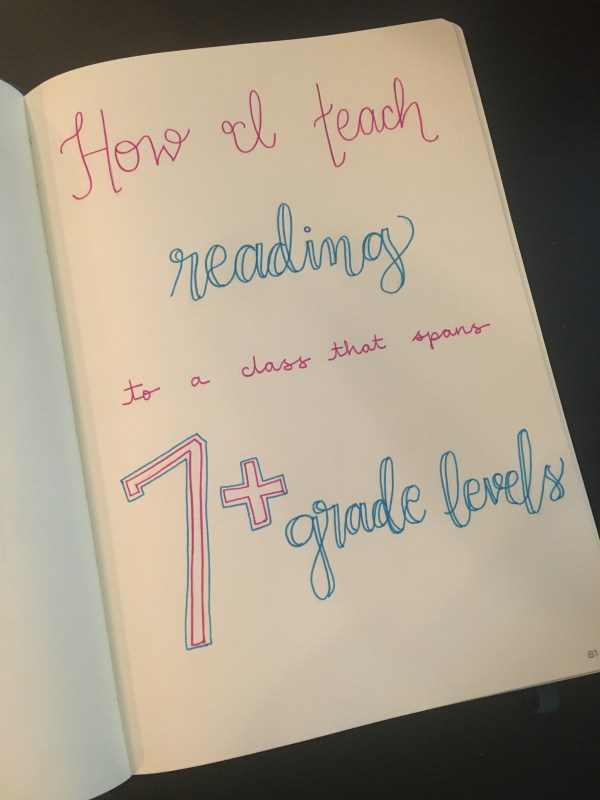 How I teach
reading
to a class that spans
7+ grade levels
81